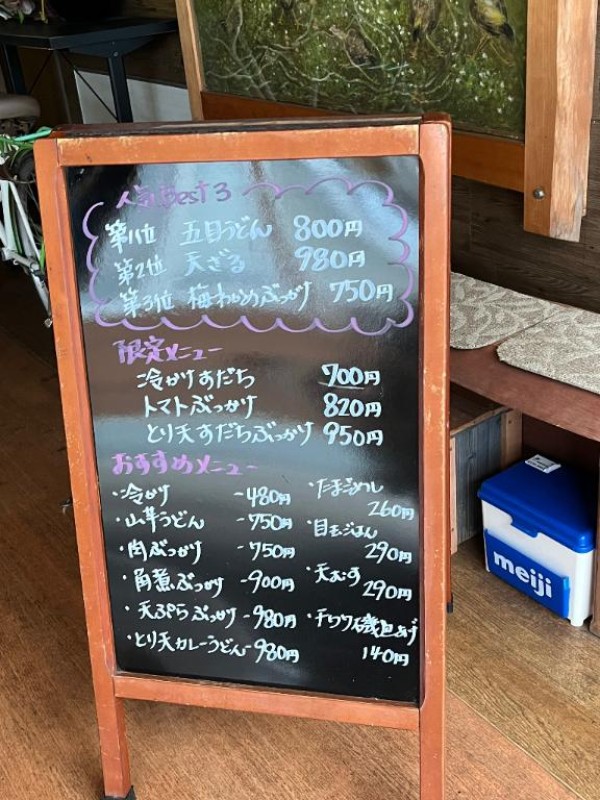 人気Best3
第1位 五目うどん 800円
第2位 天ざる 980円
第3位 梅わかめぶっかけ 750円
限定メニュー
冷かけすだち 700円
トマトぶっかけ 820円
とり天すだちぶっかけ 950円
おすすめメニュー
・冷かけ -480円
・山菜うどん -750円
・肉ぶっかけ -750円
・角煮ぶっかけ -900円
・天ぷらぶっかけ -980円
・とり天カレーうどん -980円
・たまごめし
260円
・目玉ごはん
290円
・天むす
290円
・チクワ磯辺あげ
140円
meiji